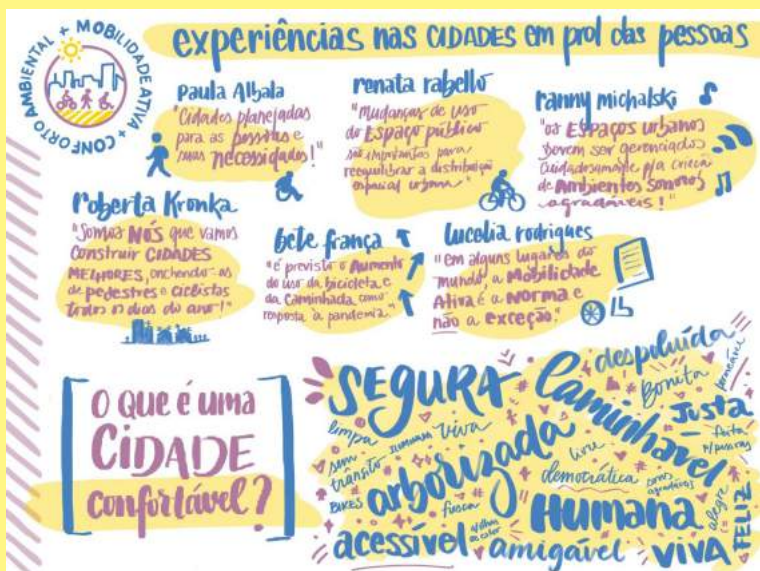 CONFORTO AMBIENTAL + MOBILIDADE ATIVA +
experiências nas CIDADES em prol das pessoas
Paula Albala
"Cidades planejadas
para as pessoas e
suas necessidades!"
renata rabello
"Mudanças de uso
do Espaço público
são importantes para
reequilibrar a distribuição
espacial urbana"
ranny michalski
"os Espaços urbanos
devem ser gerenciados
cuidadosamente p/a criação
de Ambientes sonoros
agradáveis!"
roberta Kronka
"Somos NÓS que vamos
construir CIDADES
MELHORES, enchendo-as
de pedestres e ciclistas
todos os dias do ano!"
bete frança
"é previsto o Aumento
do uso da bicicleta e
da caminhada como
resposta à pandemia."
lucelia rodrigues
"em alguns lugares do
mundo, a Mobilidade
Ativa é a norma e
não a exceção."
O que é uma
CIDADE
confortável?
SEGURA
Caminhável
despoluída
Bonita
permeável
Justa
feita
p/ pessoas
limpa
viva
sem
trânsito
arborizada
livre
democrática
sons
agradáveis
BIKES
Humana
alegre
FELIZ
acessível
amigável
VIVA